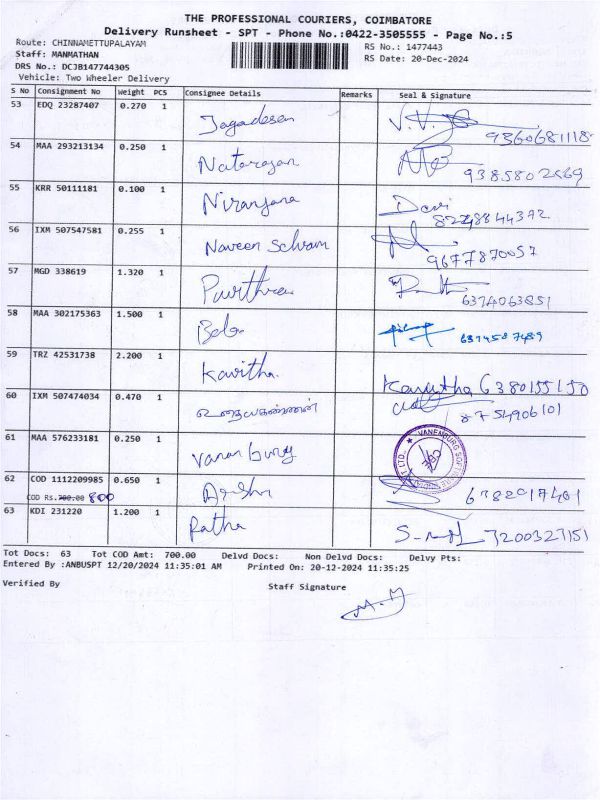 THE PROFESSIONAL COURIERS, COIMBATORE
Delivery Runsheet - SPT - Phone No.:0422-3505555 - Page No.:5
Route: CHINNAMETTUPALAYAM
RS No.: 1477443
Staff: MANMATHAN
RS Date: 20-Dec-2024
DRS No.: DCJB147744305
Vehicle: Two Wheeler Delivery
S No Consignment No Weight PCS Consignee Details Remarks Seal & Signature
53 EDQ 23287407 0.270 1 Jagadesan 9360681118
54 MAA 293213134 0.250 1 Natarajan 9385802569
55 KRR 50111181 0.100 1 Niranjana Devi 8248844372
56 IXM 507547581 0.255 1 Naveen Schram 9677870057
57 MGD 338619 1.320 1 6374063851
58 MAA 302175363 1.500 1 Baba 6374507489
59 TRZ 42531738 2.200 1 Kavitha Kavitha 6380155150
60 IXM 507474034 0.470 1 உதயகண்ணன் 8754906101
61 MAA 576233181 0.250 1 Vanan burg VANENBURG SOFTWARE
62 COD 1112209985 0.650 1 6382917401
COD Rs.700.00 800
63 KDI 231220 1.200 1 Ratha 7200327151
Tot Docs: 63 Tot COD Amt: 700.00 Delvd Docs: Non Delvd Docs: Delvy Pts:
Entered By :ANBUSPT 12/20/2024 11:35:01 AM Printed On: 20-12-2024 11:35:25
Verified By Staff Signature